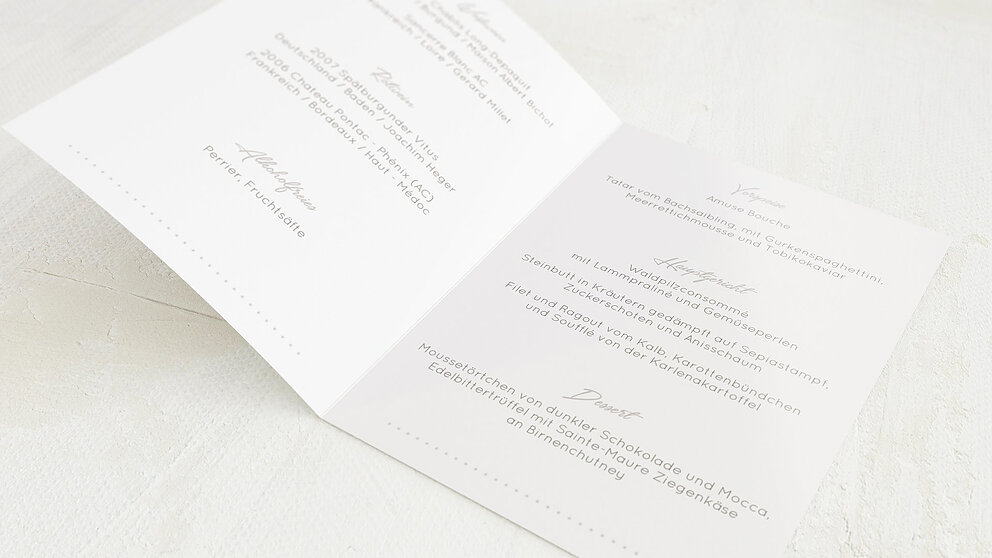 Weißwein
Chablis Long-Depaquit
/ Burgund / Maison Albert Bichot
Sancerre Blanc AC
Frankreich / Loire / Gerard Millet
Rotwein
2007 Spätburgunder Vitus
Deutschland / Baden / Joachim Heger
2006 Chateau Pontac - Phénix (AC)
Frankreich / Bordeaux / Haut - Médoc
Alkoholfreies
Perrier, Fruchtsäfte
Vorspeise
Amuse Bouche
Tatar vom Bachsaibling, mit Gurkenspaghettini,
Meerrettichmousse und Tobikokaviar
Hauptgericht
Waldpilzconsommé
mit Lammpraliné und Gemüseperlen
Steinbutt in Kräutern gedämpft auf Sepiastampf,
Zuckerschoten und Anisschaum
Filet und Ragout vom Kalb, Karottenbündchen
und Soufflé von der Karlenakartoffel
Dessert
Moussetörtchen von dunkler Schokolade und Mocca,
Edelbittertrüffel mit Sainte-Maure Ziegenkäse
an Birnenchutney